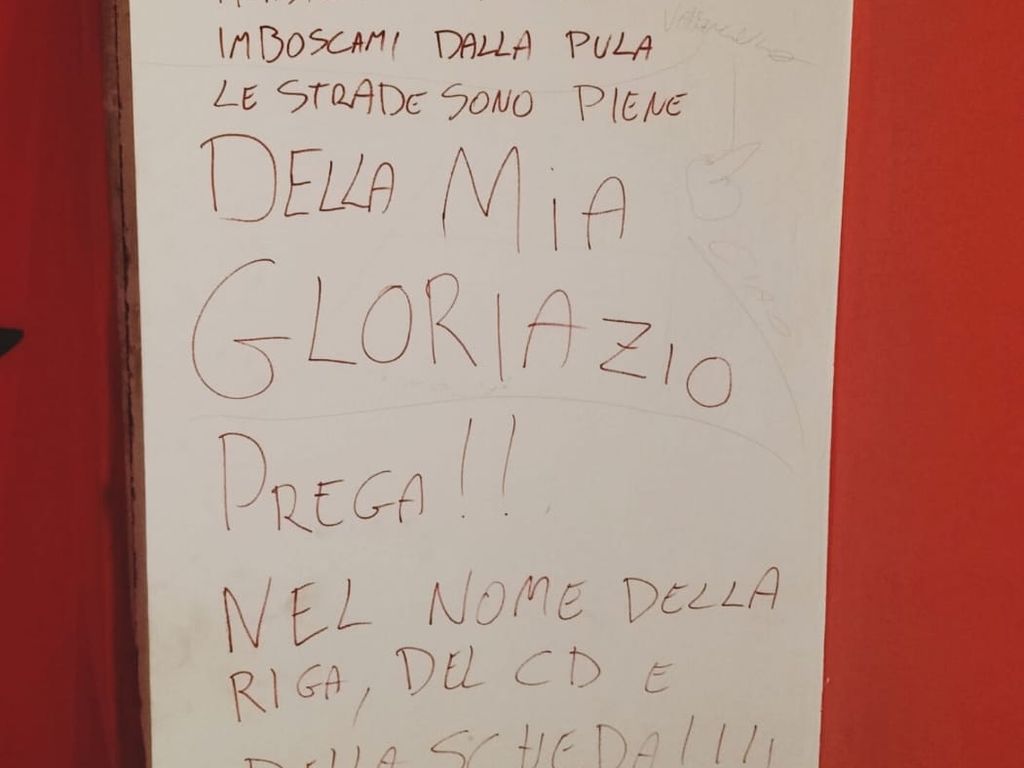 IMBOSCAMI DALLA PULA
LE STRADE SONO PIENE
DELLA MIA
GLORIA ZIO
PREGA!!
NEL NOME DELLA
RIGA, DEL CD E
DELLA SCHEDA!!!!
CIAO